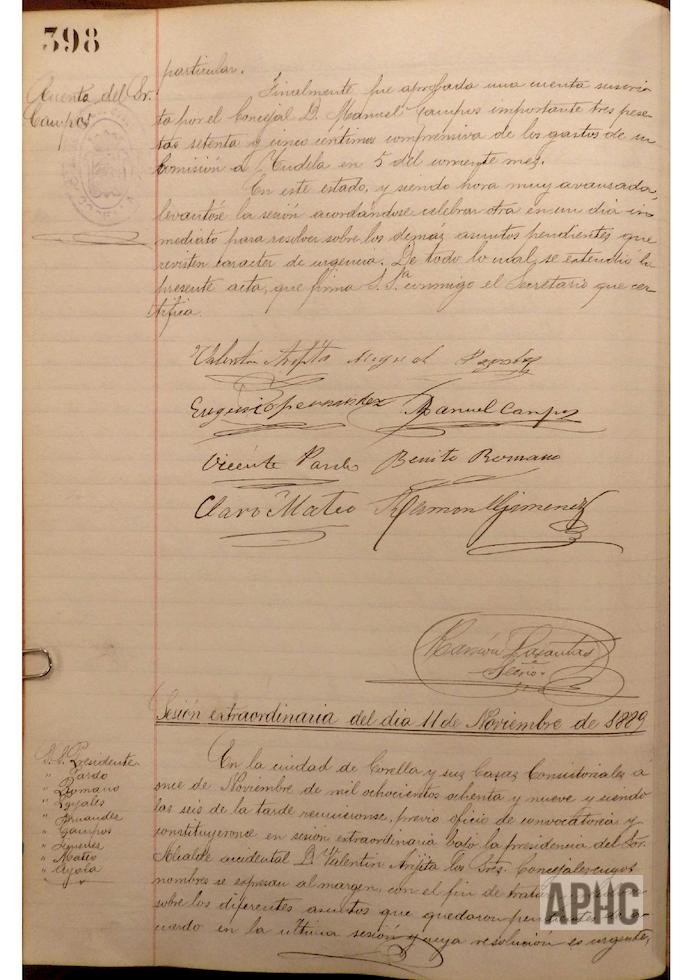 398
particular.
Cuenta del Sr.
Campos
Finalmente fue aprobada una cuenta suscri-
ta por el Concejal D. Manuel Campos importante tres pese-
tas setenta y cinco céntimos comprensiva de los gastos de su
Comisión a Tudela en 5 del corriente mes.
En este estado, y siendo hora muy avanzada,
levantóse la sesión acordándose celebrar otra en un dia in-
mediato para resolver sobre los demás asuntos pendientes que
revisten caracter de urgencia. De todo lo cual se extendio la
presente acta, que firma S.Sª conmigo el Secretario que cer-
tifica.
Valentín Arijita Miguel
Manuel Campos
Vicente Pardo Benito Romano
Claro Mateo Ramon Gimenez
Ramón
Srio.
Sesión extraordinaria del dia 11 de Noviembre de 1889
S.S. Presidente
" Pardo
" Romano
" Fernandez
" Campos
" Mateo
" Ayala
En la ciudad de Corella y sus Casas Consistoriales á
once de Noviembre de mil ochocientos ochenta y nueve y siendo
las seis de la tarde reunieronse, previo oficio de convocatoria y
constituyeronse en sesión extraordinaria bajo la presidencia del Sor.
Alcalde accidental D. Valentín Arijita los Sres. Concejales cuyos
nombres se expresan al margen, con el fin de tratar
sobre los diferentes asuntos que quedaron pendientes de a-
cuerdo en la última sesión y cuya resolución es urgente,
APHC